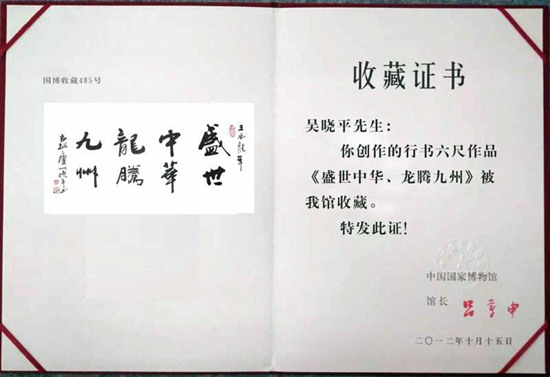 国博收藏485号
壬辰龙年
盛世
中華
龍騰
九州
收藏证书
吴晓平先生：
你创作的行书六尺作品
《盛世中华、龙腾九州》被
我馆收藏。
特发此证！
中国国家博物馆
馆长 吕章申
二〇一二年十月十五日